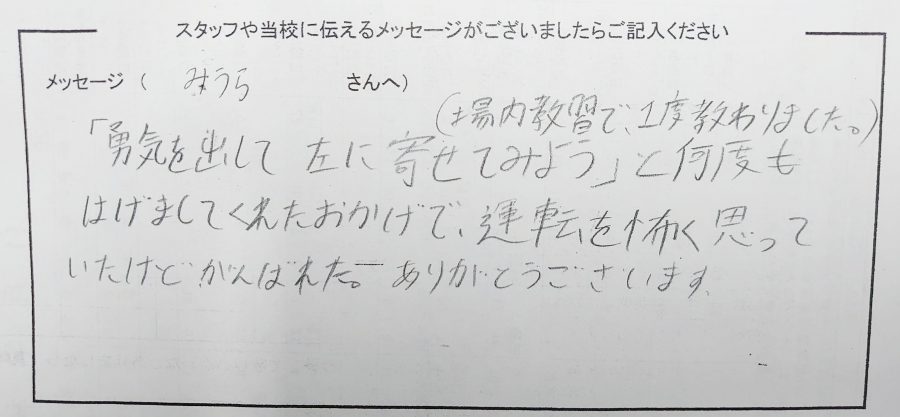 スタッフや当校に伝えるメッセージがございましたらご記入ください
メッセージ（ みうら さんへ）
（場内教習で、1度教わりました。）
「勇気を出して 左に寄せてみよう」と何度も
はげましてくれたおかげで、運転を怖く思って
いたけどがんばれた。ありがとうございます